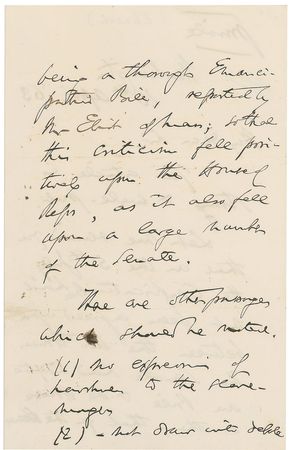 being a thorough Emanci-
pation Bill, reported by
Mr Eliot of Mass; so that
this criticism fell posi-
tively upon the House of
Reps, as it also fell
upon a large number
of the Senate.
There are other passages
which should be noted.
(1) no expression of
to the slave-
mongers
(2) - not drawn into debate